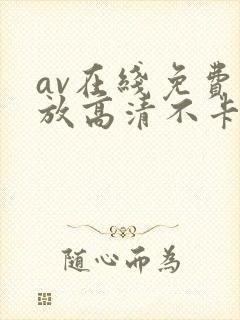 av在綫免費
放高清不卡
随心而為